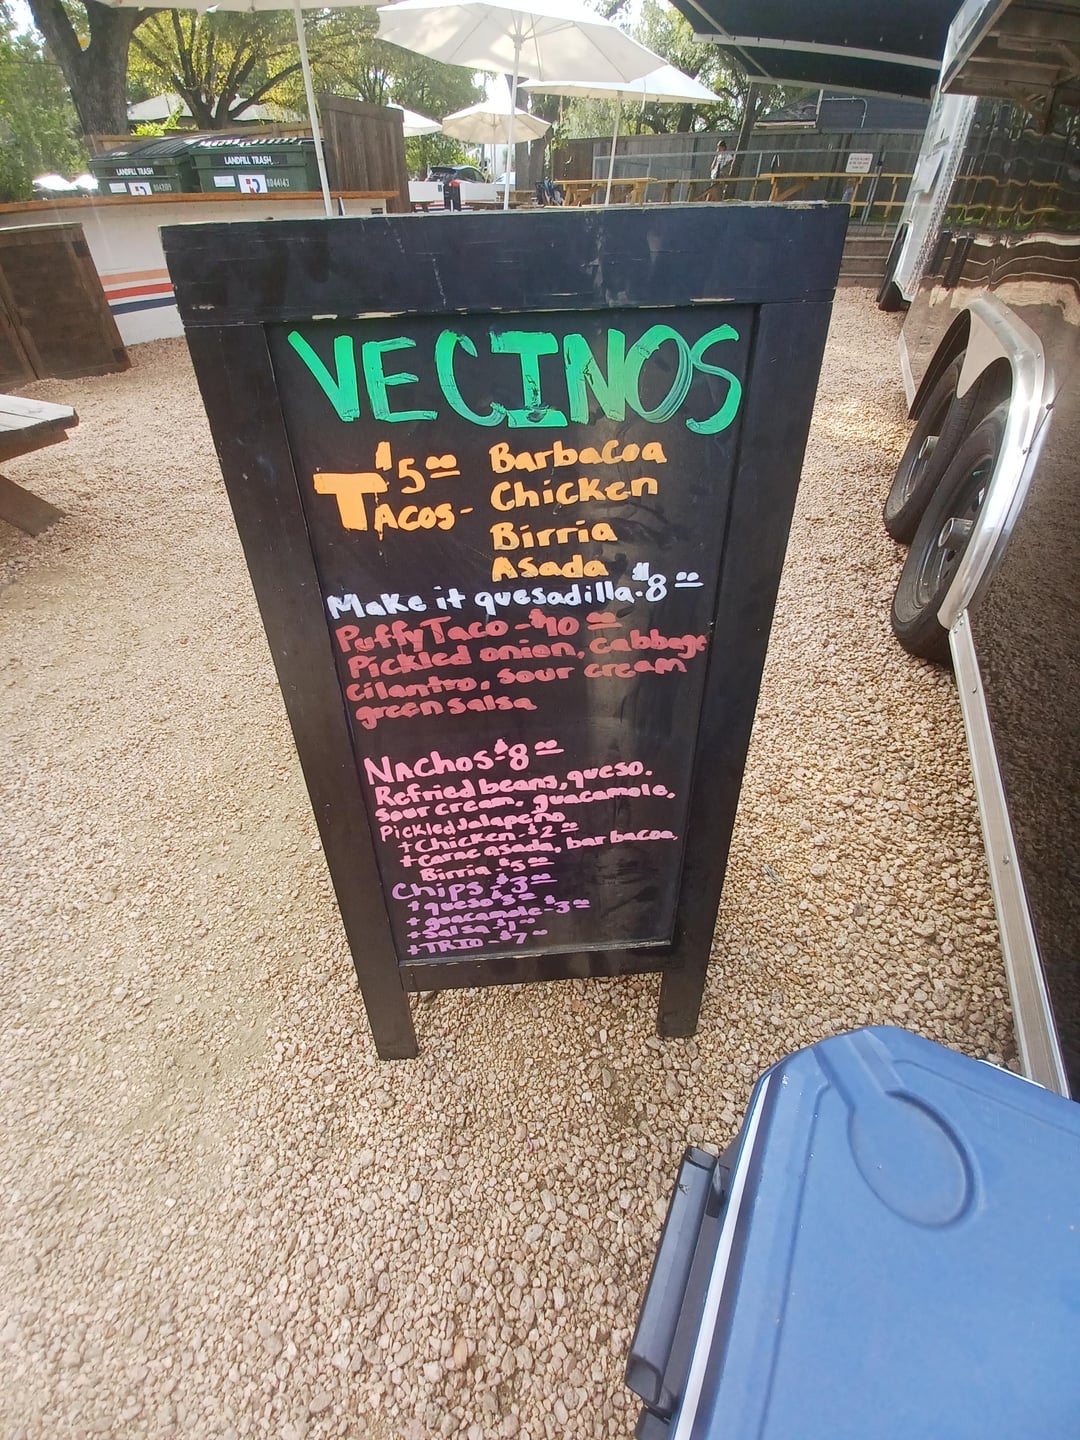 LANDFILL TRASH
LANDFILL TRASH
VECINOS
$5.00 Barbacoa
TACOS- Chicken
Birria
Asada
Make it quesadilla. $8.00
Puffy Taco - $10.00
Pickled onion, cabbage
cilantro, sour cream
green salsa
Nachos - $8.00
Refried beans, queso.
Sour cream, guacamole,
Pickled Jalapeño
+Chicken - $2.00
+Carne asada, barbacoa,
Birria - $5.00
Chips - $3.00
+ queso $3.00
+ guacamole - $3.00
+ Salsa - $1.00
+ TRIO - $7.00